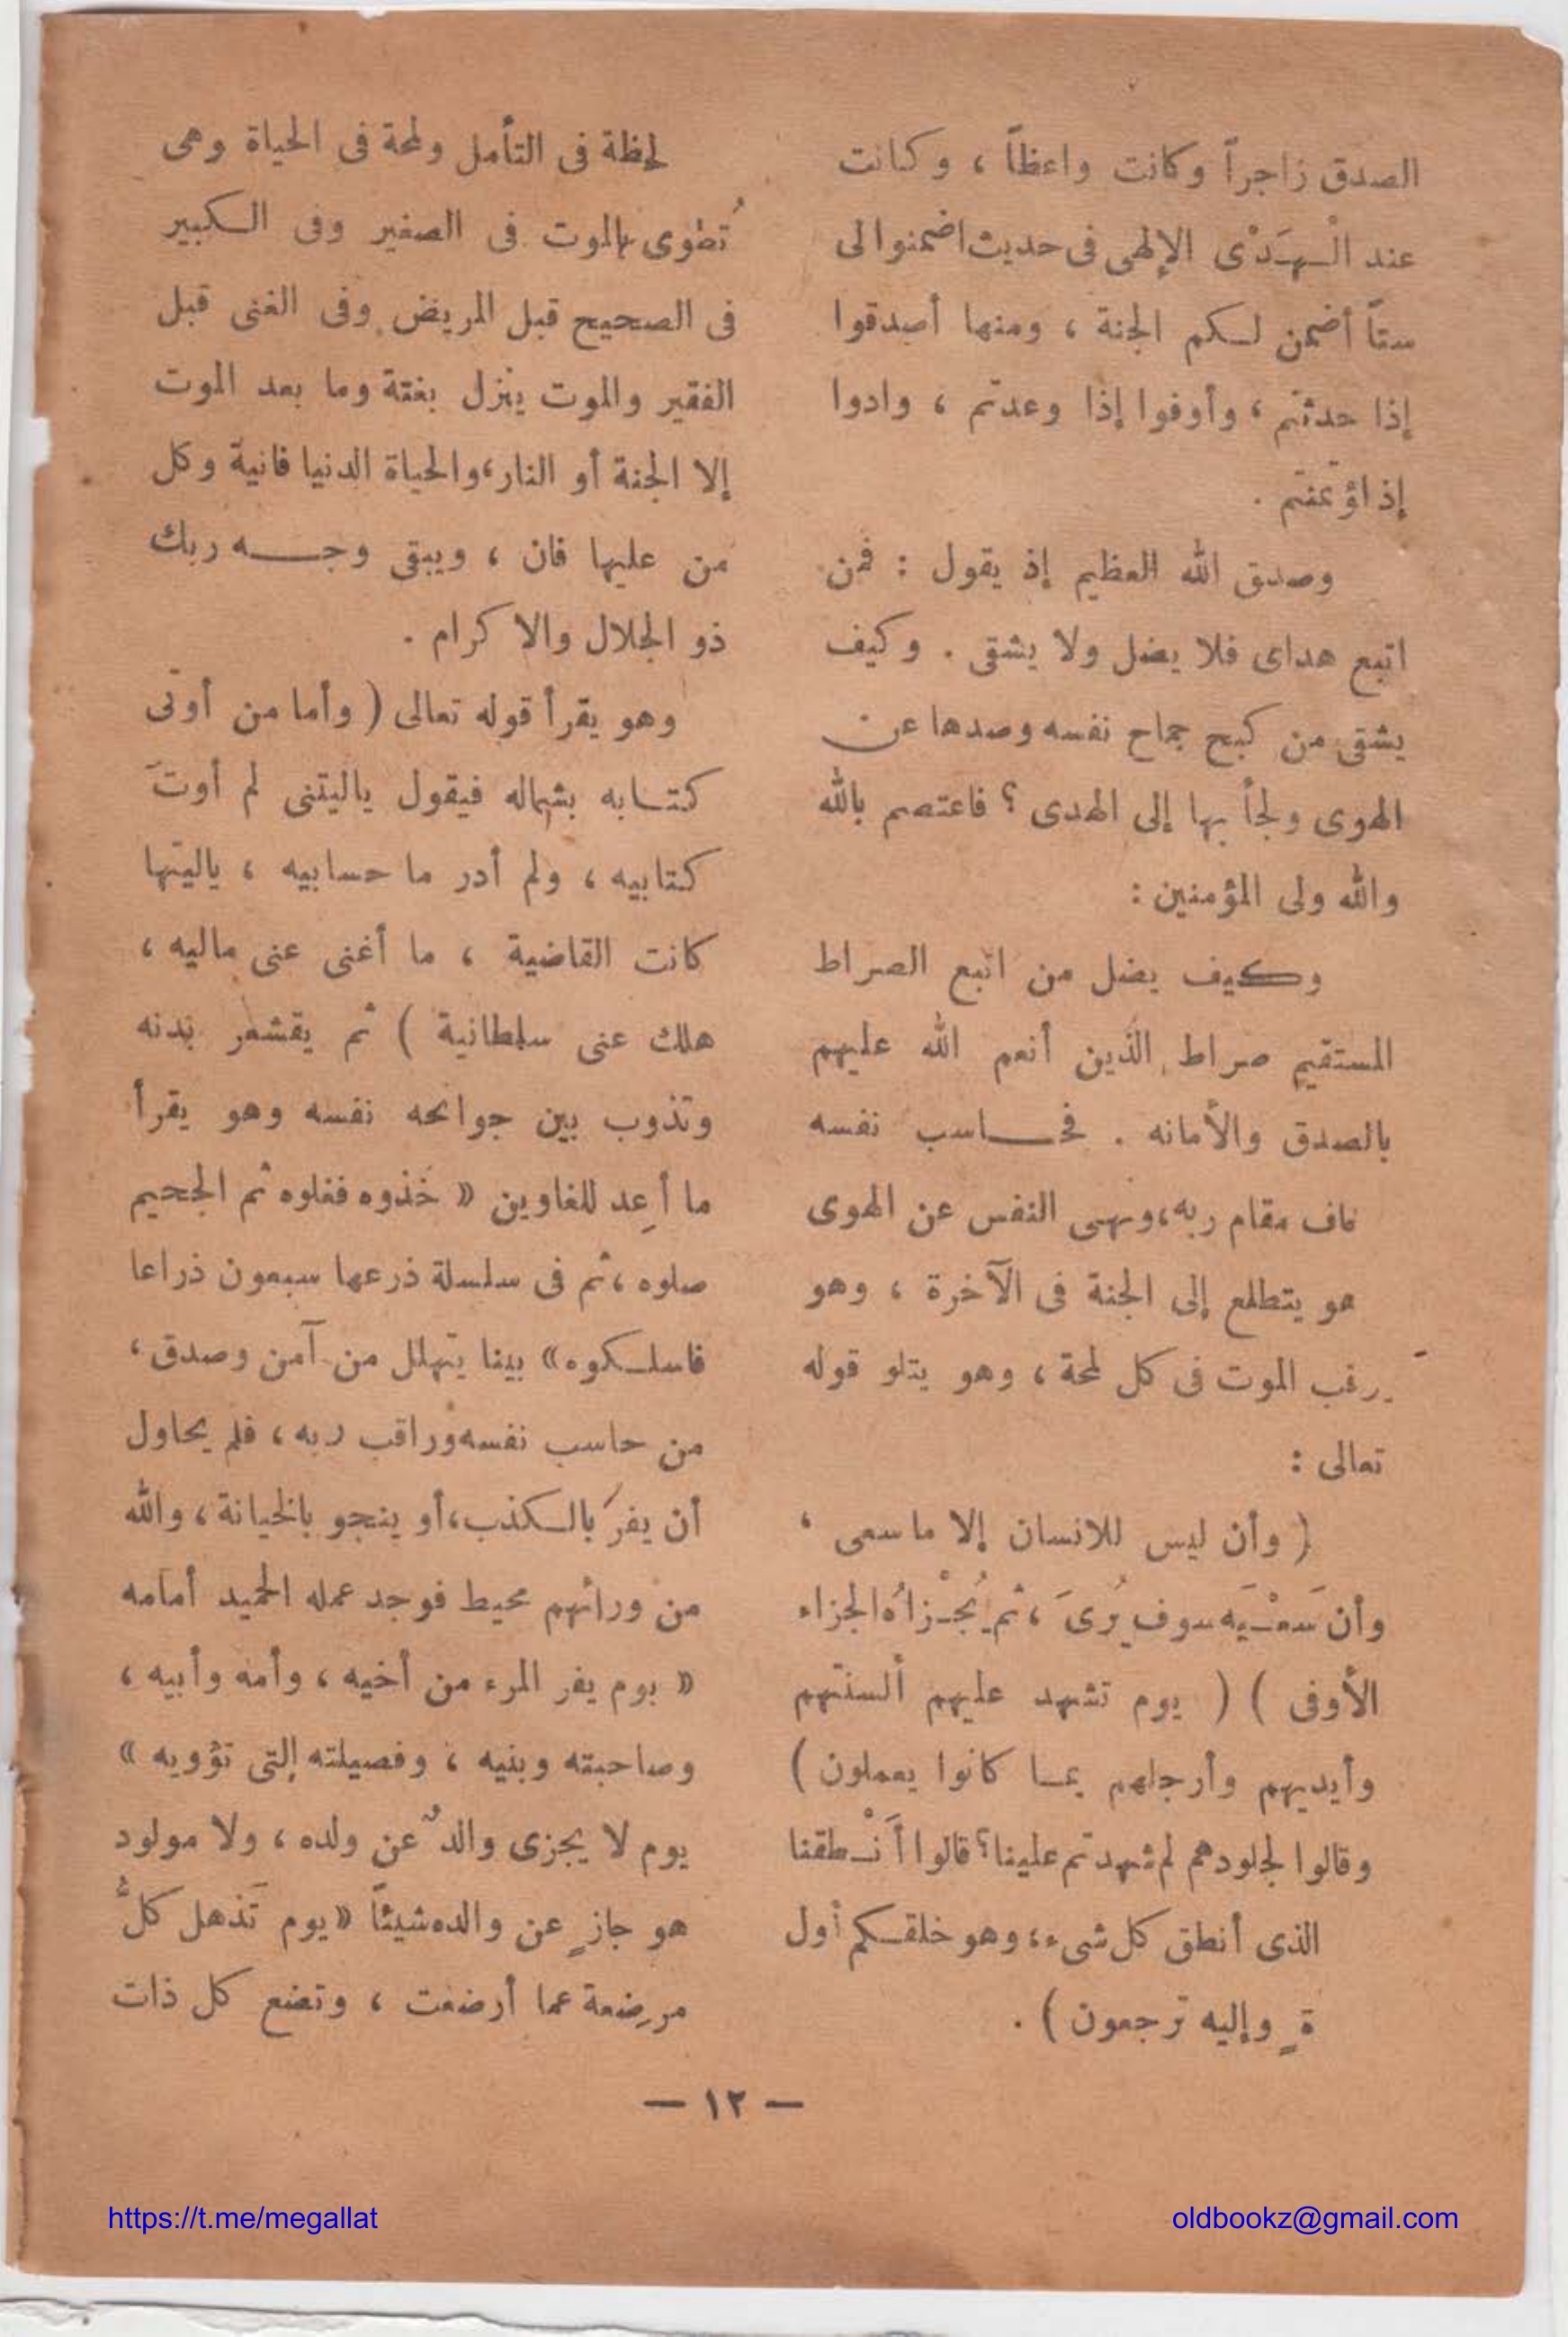 الصدق زاجراً وكانت واعظاً ، وكانت
عند الْهَدْى الإلهى فى حديث اضمنوا لى
ستاً أضمن لكم الجنة ، ومنها أصدقوا
إذا حدثتم ، وأوفوا إذا وعدتم ، وادوا
إذا ؤتمنتم .
وصدق الله العظيم إذ يقول : فمن
اتبع هداى فلا يضل ولا يشقى . وكيف
يشقى من كبح جماح نفسه وصدها عن
الهوى ولجأ بها إلى الهدى ؟ فاعتصم بالله
والله ولى المؤمنين :
وكيف يضل من اتبع الصراط
المستقيم صراط الذين أنعم الله عليهم
بالصدق والأمانه . فحاسب نفسه
مقام ربه ، ونهى النفس عن الهوى
هو يتطلع إلى الجنة فى الآخرة ، وهو
الموت فى كل لمحة ، وهو يتلو قوله
تعالى :
( وأن ليس للانسان إلا ما سعى ،
وأن سَعْيَه سوف يُرىَ ، ثم يُجْزاهُ الجزاء
الأوفى ) ( يوم تشهد عليهم ألسنتهم
وأيديهم وأرجلهم بما كانوا يعملون )
وقالوا لجلودهم لم شهدتم علينا ؟ قالوا أَنْطقنا
الذى أنطق كل شىء ، وهو خلقكم أول
ةٍ وإليه ترجعون ) .
لحظة فى التأمل ولمحة فى الحياة وهى
تُطوى بالموت فى الصغير وفى الكبير
فى الصحيح قبل المريض وفى الغنى قبل
الفقير والموت ينزل بغتة وما بعد الموت
إلا الجنة أو النار ، والحياة الدنيا فانية وكل
من عليها فان ، ويبقى وجه ربك
ذو الجلال والاكرام .
وهو يقرأ قوله تعالى ( وأما من أوتى
كتابه بشماله فيقول ياليتنى لم أوتَ
كتابيه ، ولم أدر ما حسابيه ، ياليتها
كانت القاضية ، ما أغنى عنى ماليه ،
هلك عنى سلطانية ) ثم يقشعر بدنه
وتذوب بين جوانحه نفسه وهو يقرأ
ما أُعِد للغاوين « خذوه فغلوه ثم الجحيم
صلوه ، ثم فى سلسلة ذرعها سبعون ذراعا
فاسلكوه » بينا يتهلل من آمن وصدق ،
من حاسب نفسه وراقب ربه ، فلم يحاول
أن يفرَ بالكذب ، أو ينجو بالخيانة ، والله
من ورائهم محيط فوجد عمله الحميد أمامه
« يوم يفر المرء من أخيه ، وأمه وأبيه ،
وصاحبته وبنيه ، وفصيلته التى تؤويه »
يوم لا يجزى والدٌ عن ولده ، ولا مولود
هو جازٍ عن والده شيئاً « يوم تَذهل كلُّ
مرضِعة عما أرضعت ، وتضع كل ذات
— ١٢ —
https://t.me/megallat
oldbookz@gmail.com